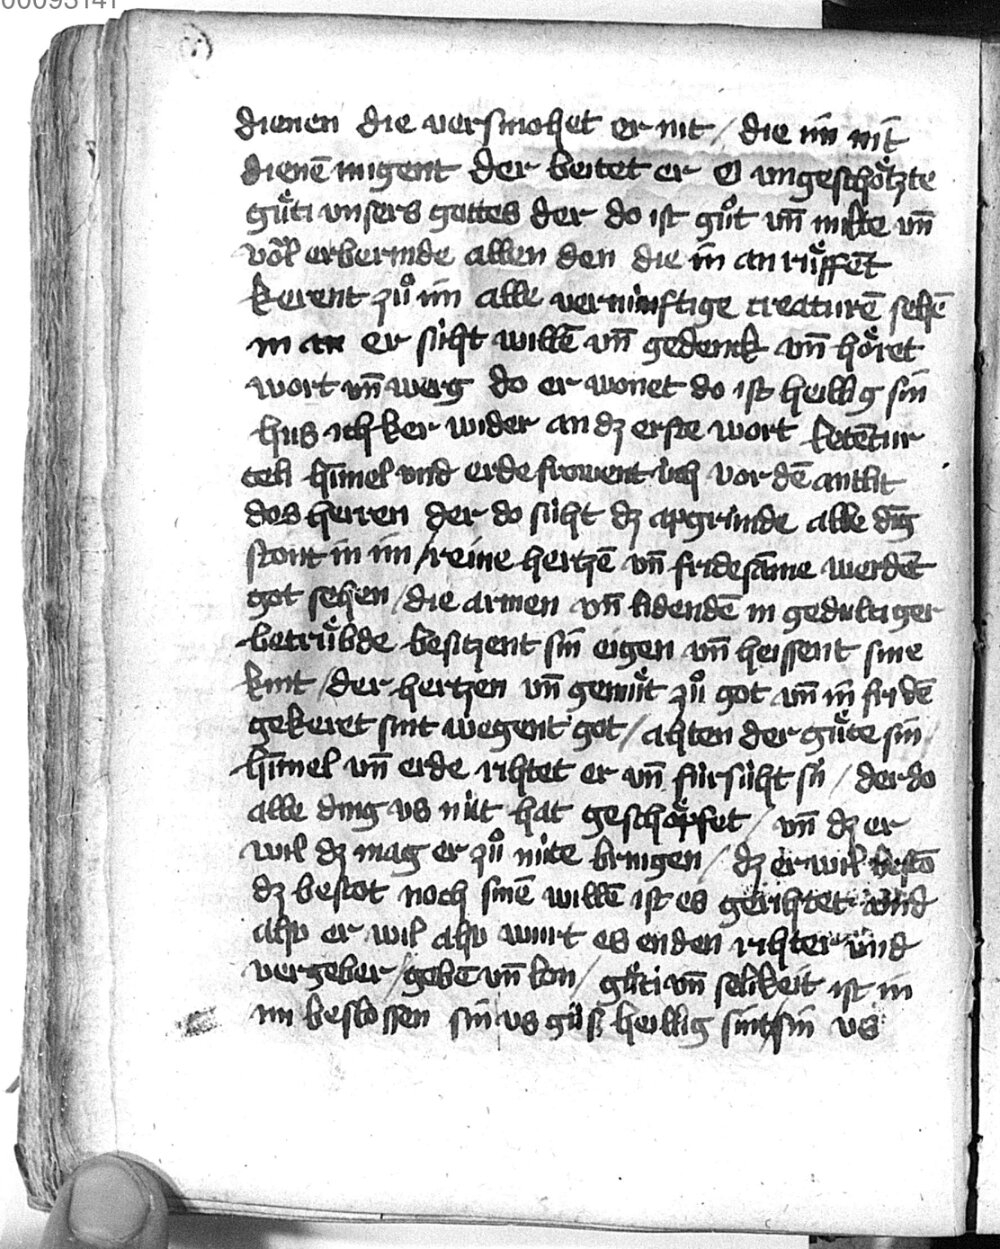 00093141
dienen die versmohet er nit / die im nit
dienē migent der beitet er O vngeschoͤtzte
guͤti vnsers gottes der do ist guͦt vn̄ milte vn̄
vol erbermde allen den die in an ruͤffēt
kerent zuͦ im alle vernúnftige creaturē sehē
in an er siht willē vn̄ gedenck vn̄ hoͤret
wort vn̄ werg do er wonet do ist heillig sin
hus ich ker wider an dz erste wort
himel vnd erde frowent úch vor dē antlit
des herren der do siht dz apgrúnde alle ding
stont in im / reine hertzē vn̄ fridesāme werdēt
got sehen / die armen vn̄ lidendē in gedultiger
betruͤbde besitzent sin eigen vn̄ heissent sine
kint / der hertzen vn̄ gemuͤt zuͦ got vn̄ in fridē
gekeret sint wegent got / achten der guͤte sin /
himel vn̄ erde rihtet er vn̄ fúrsiht sú / der do
alle ding vs nút hat geschoͤpfet / vn̄ dz er
wil dz mag er zuͦ núte bringen / dz er wil bestō
dz bestot noch sinē willē ist es gerihtet vnd
also er wil also wurt es enden rihter vnd
vergeber / gebē vn̄ lon / guͤti vn̄ selikeit ist in
im beslossen sin vs gus heillig sint / sin vs